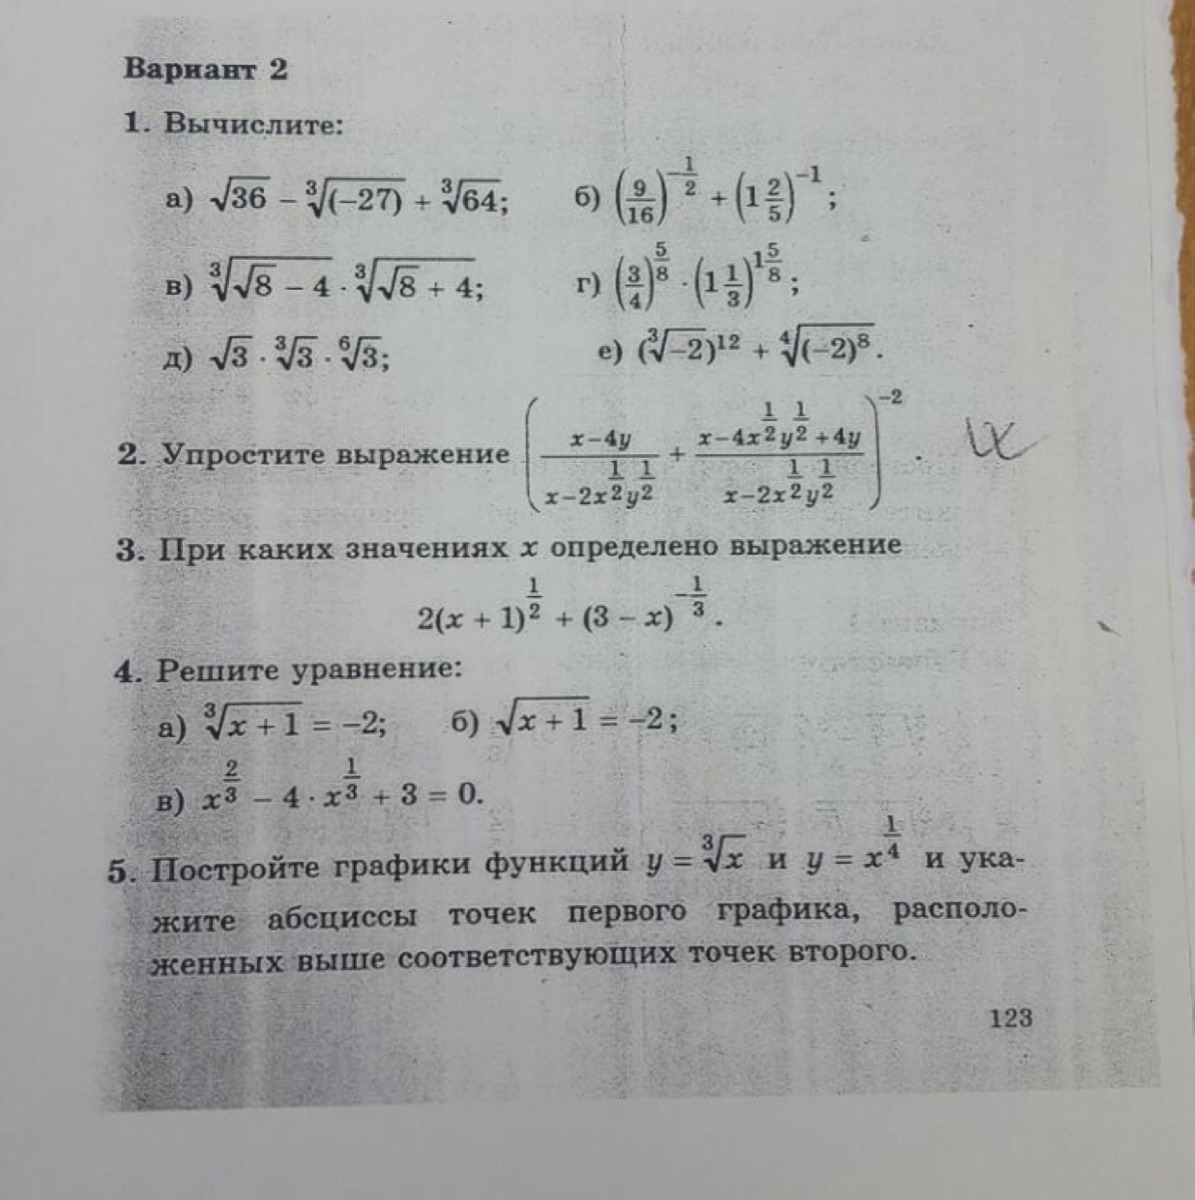 Вариант 2
1. Вычислите:
а) √36 − ∛(−27) + ∛64; б) (9/16)^(−1/2) + (1 2/5)^(−1);
в) ∛(√8 − 4) · ∛(√8 + 4); г) (3/4)^(5/8) · (1 1/3)^(1 5/8);
д) √3 · ∛3 · ⁶√3; е) (∛−2)¹² + ∜(−2)⁸.
2. Упростите выражение ((x−4y)/(x−2x^(1/2)y^(1/2)) + (x−4x^(1/2)y^(1/2)+4y)/(x−2x^(1/2)y^(1/2)))^(−2).
3. При каких значениях x определено выражение
2(x + 1)^(1/2) + (3 − x)^(−1/3).
4. Решите уравнение:
а) ∛(x + 1) = −2; б) √(x + 1) = −2;
в) x^(2/3) − 4 · x^(1/3) + 3 = 0.
5. Постройте графики функций y = ∛x и y = x^(1/4) и ука-
жите абсциссы точек первого графика, располо-
женных выше соответствующих точек второго.
123